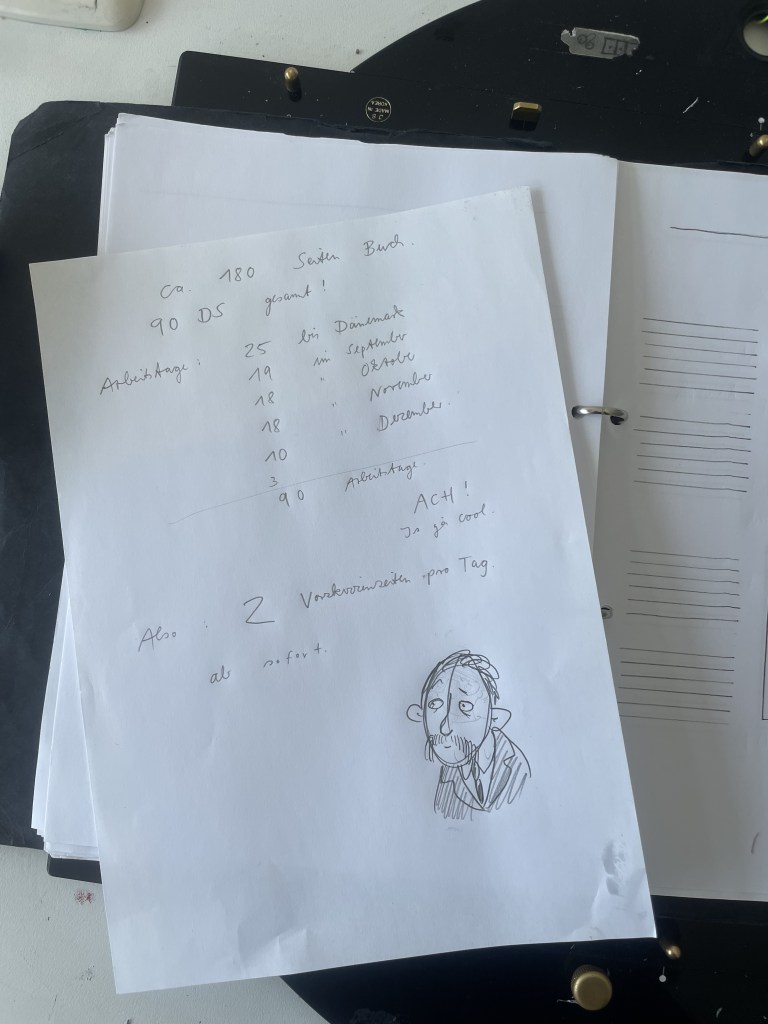 ca. 180 Seiten Buch.
90 DS gesamt!
Arbeitstage: 25 bis Dänemark
19 im September
18 " Oktober
18 " November
10 " Dezember.
3
90 Arbeitstage.
ACH!
Is ja cool.
Also: 2 pro Tag.
ab sofort.
MADE IN KOREA